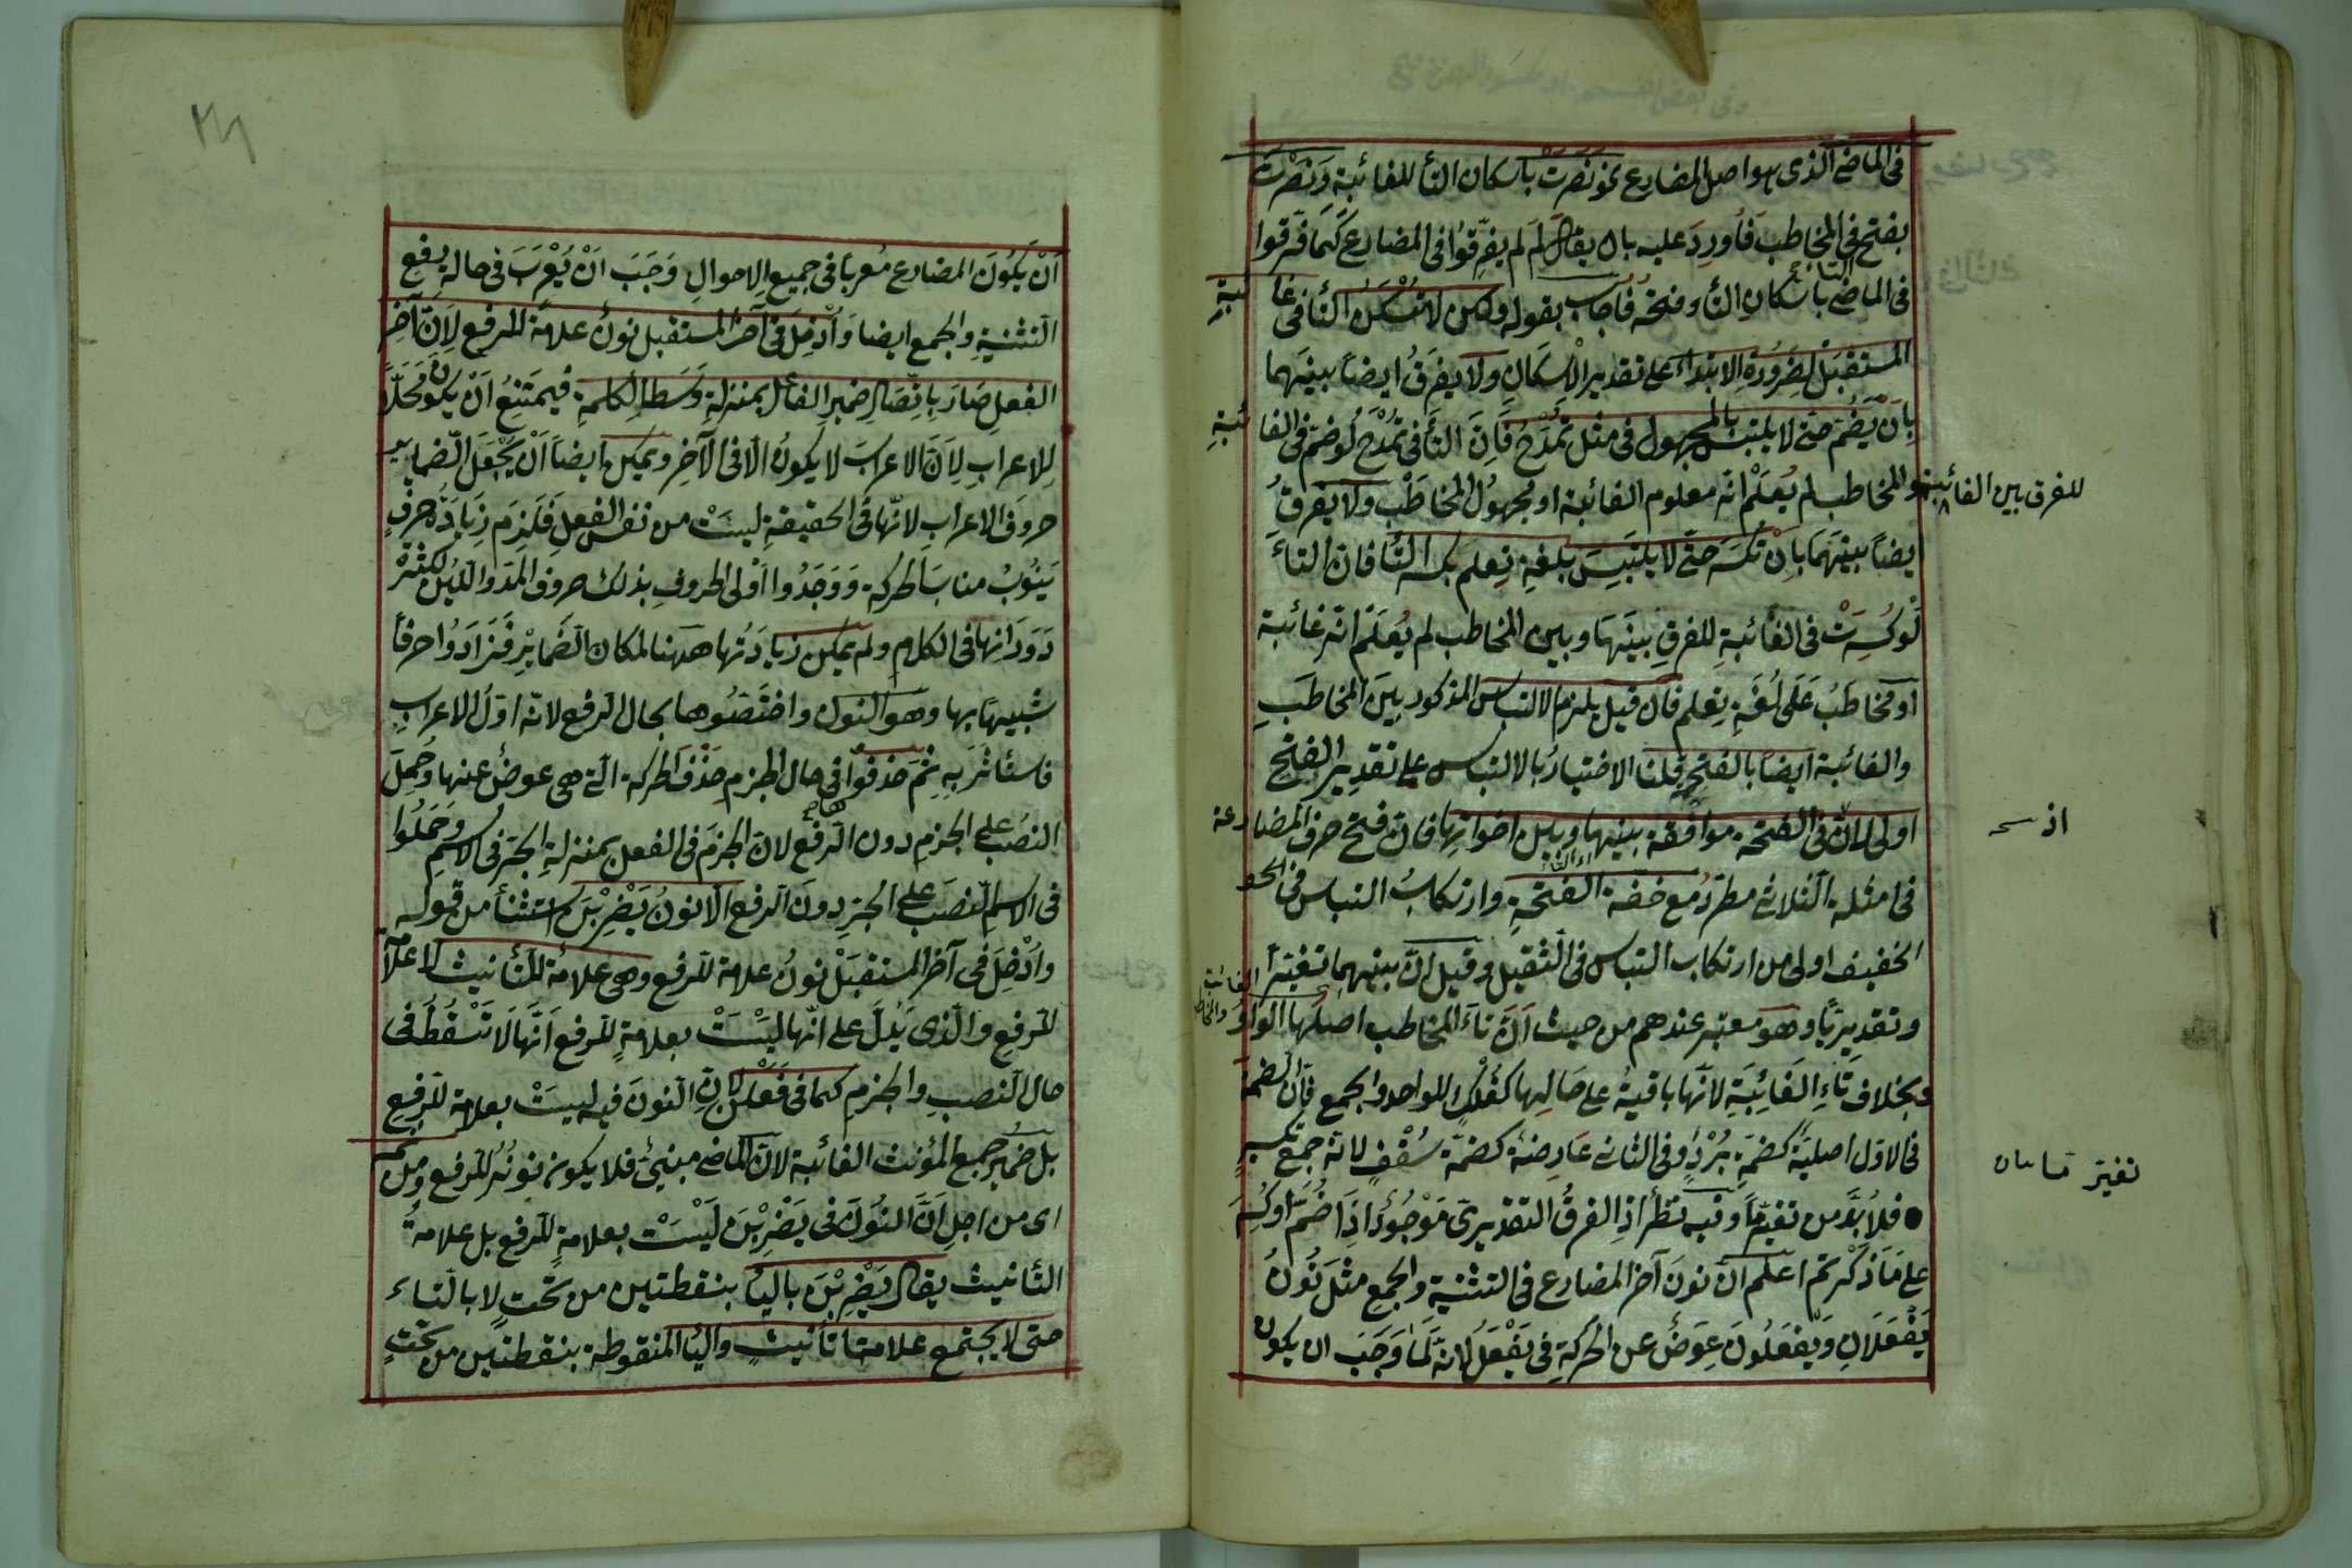 فى الماضى الذى هو اصل المضارع نحو نصرت باسكان التأ للغائبة ونصرت
بفتح فى المخاطب فأورد عليه بان يقال لم لم يفرقوا فى المضارع كما فرقوا
فى الماضى باسكان التأ وفتحه فاجاب بقوله ولكن لا تسكن التأ فى غائبة
المستقبل لضرورة الابتداء على تقدير الاسكان ولا يفرق ايضا بينهما
بان يضم حتى لا يلتبس بالمجهول فى مثل تمدح فان التأ فى تمدح لو ضم فى الغائبة
للفرق بين الغائبة والمخاطب لم يعلم انه معلوم الغائبة او مجهول المخاطب ولا يفرق
ايضا بينهما بان تكسر حتى لا يلتبس بلغة تعلم بكسر التأ فان التاء
لو كسرت فى الغائبة للفرق بينها وبين المخاطب لم يعلم انه غائبة
او مخاطب على لغة تعلم فان قيل يلزم الالتباس المذكور بين المخاطب
والغائبة ايضا بالفتح قلنا الاختيار بالالتباس على تقدير الفتح
اولى لان فى الفتحة موافقة بينها وبين اخواتها فان فتح حرف المضارعة
فى امثلة الثلاثى مطرد مع خفة الفتحة وارتكاب التباس فى
الخفيف اولى من ارتكاب التباس فى الثقيل وقيل ان بينهما تغيرا
وتقديريا وهو معتبر عندهم من حيث ان تاء المخاطب اصلها الواو
وبخلاف تاء الغائبة لانها باقية على حالها كفلك للواحد والجمع فان الضمة
فى الاول اصلية كضمة برد وفى الثانى عارضة كضمة سقف لانه جمع تكسير
فلا بد من تغير ما وفيه نظر اذ الفرق التقديرى موجود اذا ضم او كسر
على ما ذكر ثم اعلم ان نون آخر المضارع فى التثنية والجمع مثل نون
يفعلان ويفعلون عوض عن الحركة فى يفعل لانه لما وجب ان يكون
ان يكون المضارع معربا فى جميع الاحوال وجب ان يعرب فى حالة رفع
التثنية والجمع ايضا وادخل فى آخر المستقبل نون علامة للرفع لان آخر
الفعل صار باتصال ضمير الفاعل بمنزلة وسط الكلمة فيمتنع ان يكون محلا
للاعراب لان الاعراب لا يكون الا فى الآخر ويمكن ايضا ان يجعل الضماير
حروف الاعراب لانها فى الحقيقة ليست من نفس الفعل فلزم زيادة حرف
ينوب مناب الحركة ووجدوا اولى الحروف بذلك حروف المد واللين لكثرة
دورانها فى الكلام ولم يمكن زيادتها ههنا لمكان الضماير فزادوا حرفا
شبيها بها وهو النون واختصوها بحال الرفع لانه اول الاعراب
فاستأثر به ثم حذفوا فى حال الجزم حذف الحركة التى هى عوض عنها وحمل
النصب على الجزم دون الرفع لان الجزم فى الفعل بمنزلة الجر فى الاسم وحملوا
فى الاسم النصب على الجر دون الرفع الا نون يضربن استثنأ من قوله
وادخل فى آخر المستقبل نون علامة للرفع وهى علامة للتأنيث لا علامة
للرفع والذى يدل على انها ليست بعلامة للرفع انها لا تسقط فى
حال النصب والجزم كما فى فعلن لان النون فيه ليست بعلامة للرفع
بل ضمير جمع المؤنث الغائبة لان الماضى مبنى فلا يكون نونه للرفع ومن ثمه
اى من اجل ان النون فى يضربن ليست بعلامة للرفع بل علامة
التأنيث يقال يضربن باليأ بنقطتين من تحت لا بالتاء
حتى لا يجتمع علامتا تأنيث واليأ المنقوطة بنقطتين من تحت